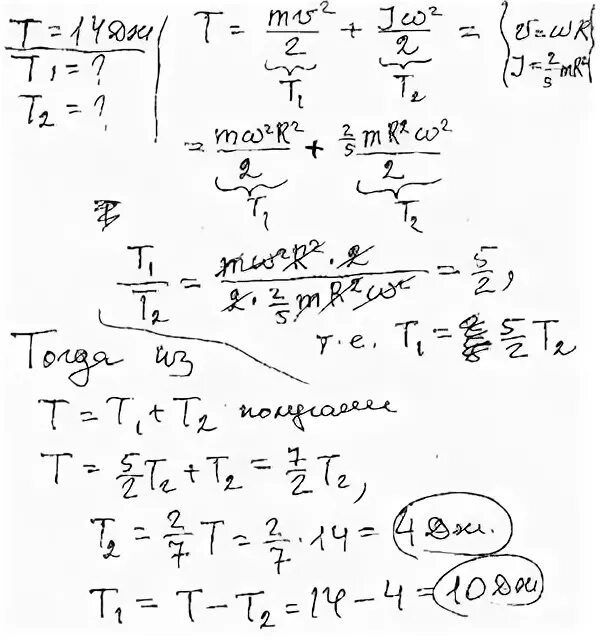 T = 14 Дж
T₁ = ?
T₂ = ?
T = mv²/2 + Jω²/2 = { v = ωR
T₁ T₂ J = 2/5 mR²
= mω²R²/2 + 2/5 mR²ω²/2
T₁ T₂
T₁/T₂ = mω²R²·2 / 2·2/5 mR²ω² = 5/2,
т.е. T₁ = 5/2 T₂
Тогда из
T = T₁ + T₂ получаем
T = 5/2 T₂ + T₂ = 7/2 T₂,
T₂ = 2/7 T = 2/7 · 14 = 4 Дж.
T₁ = T − T₂ = 14 − 4 = 10 Дж